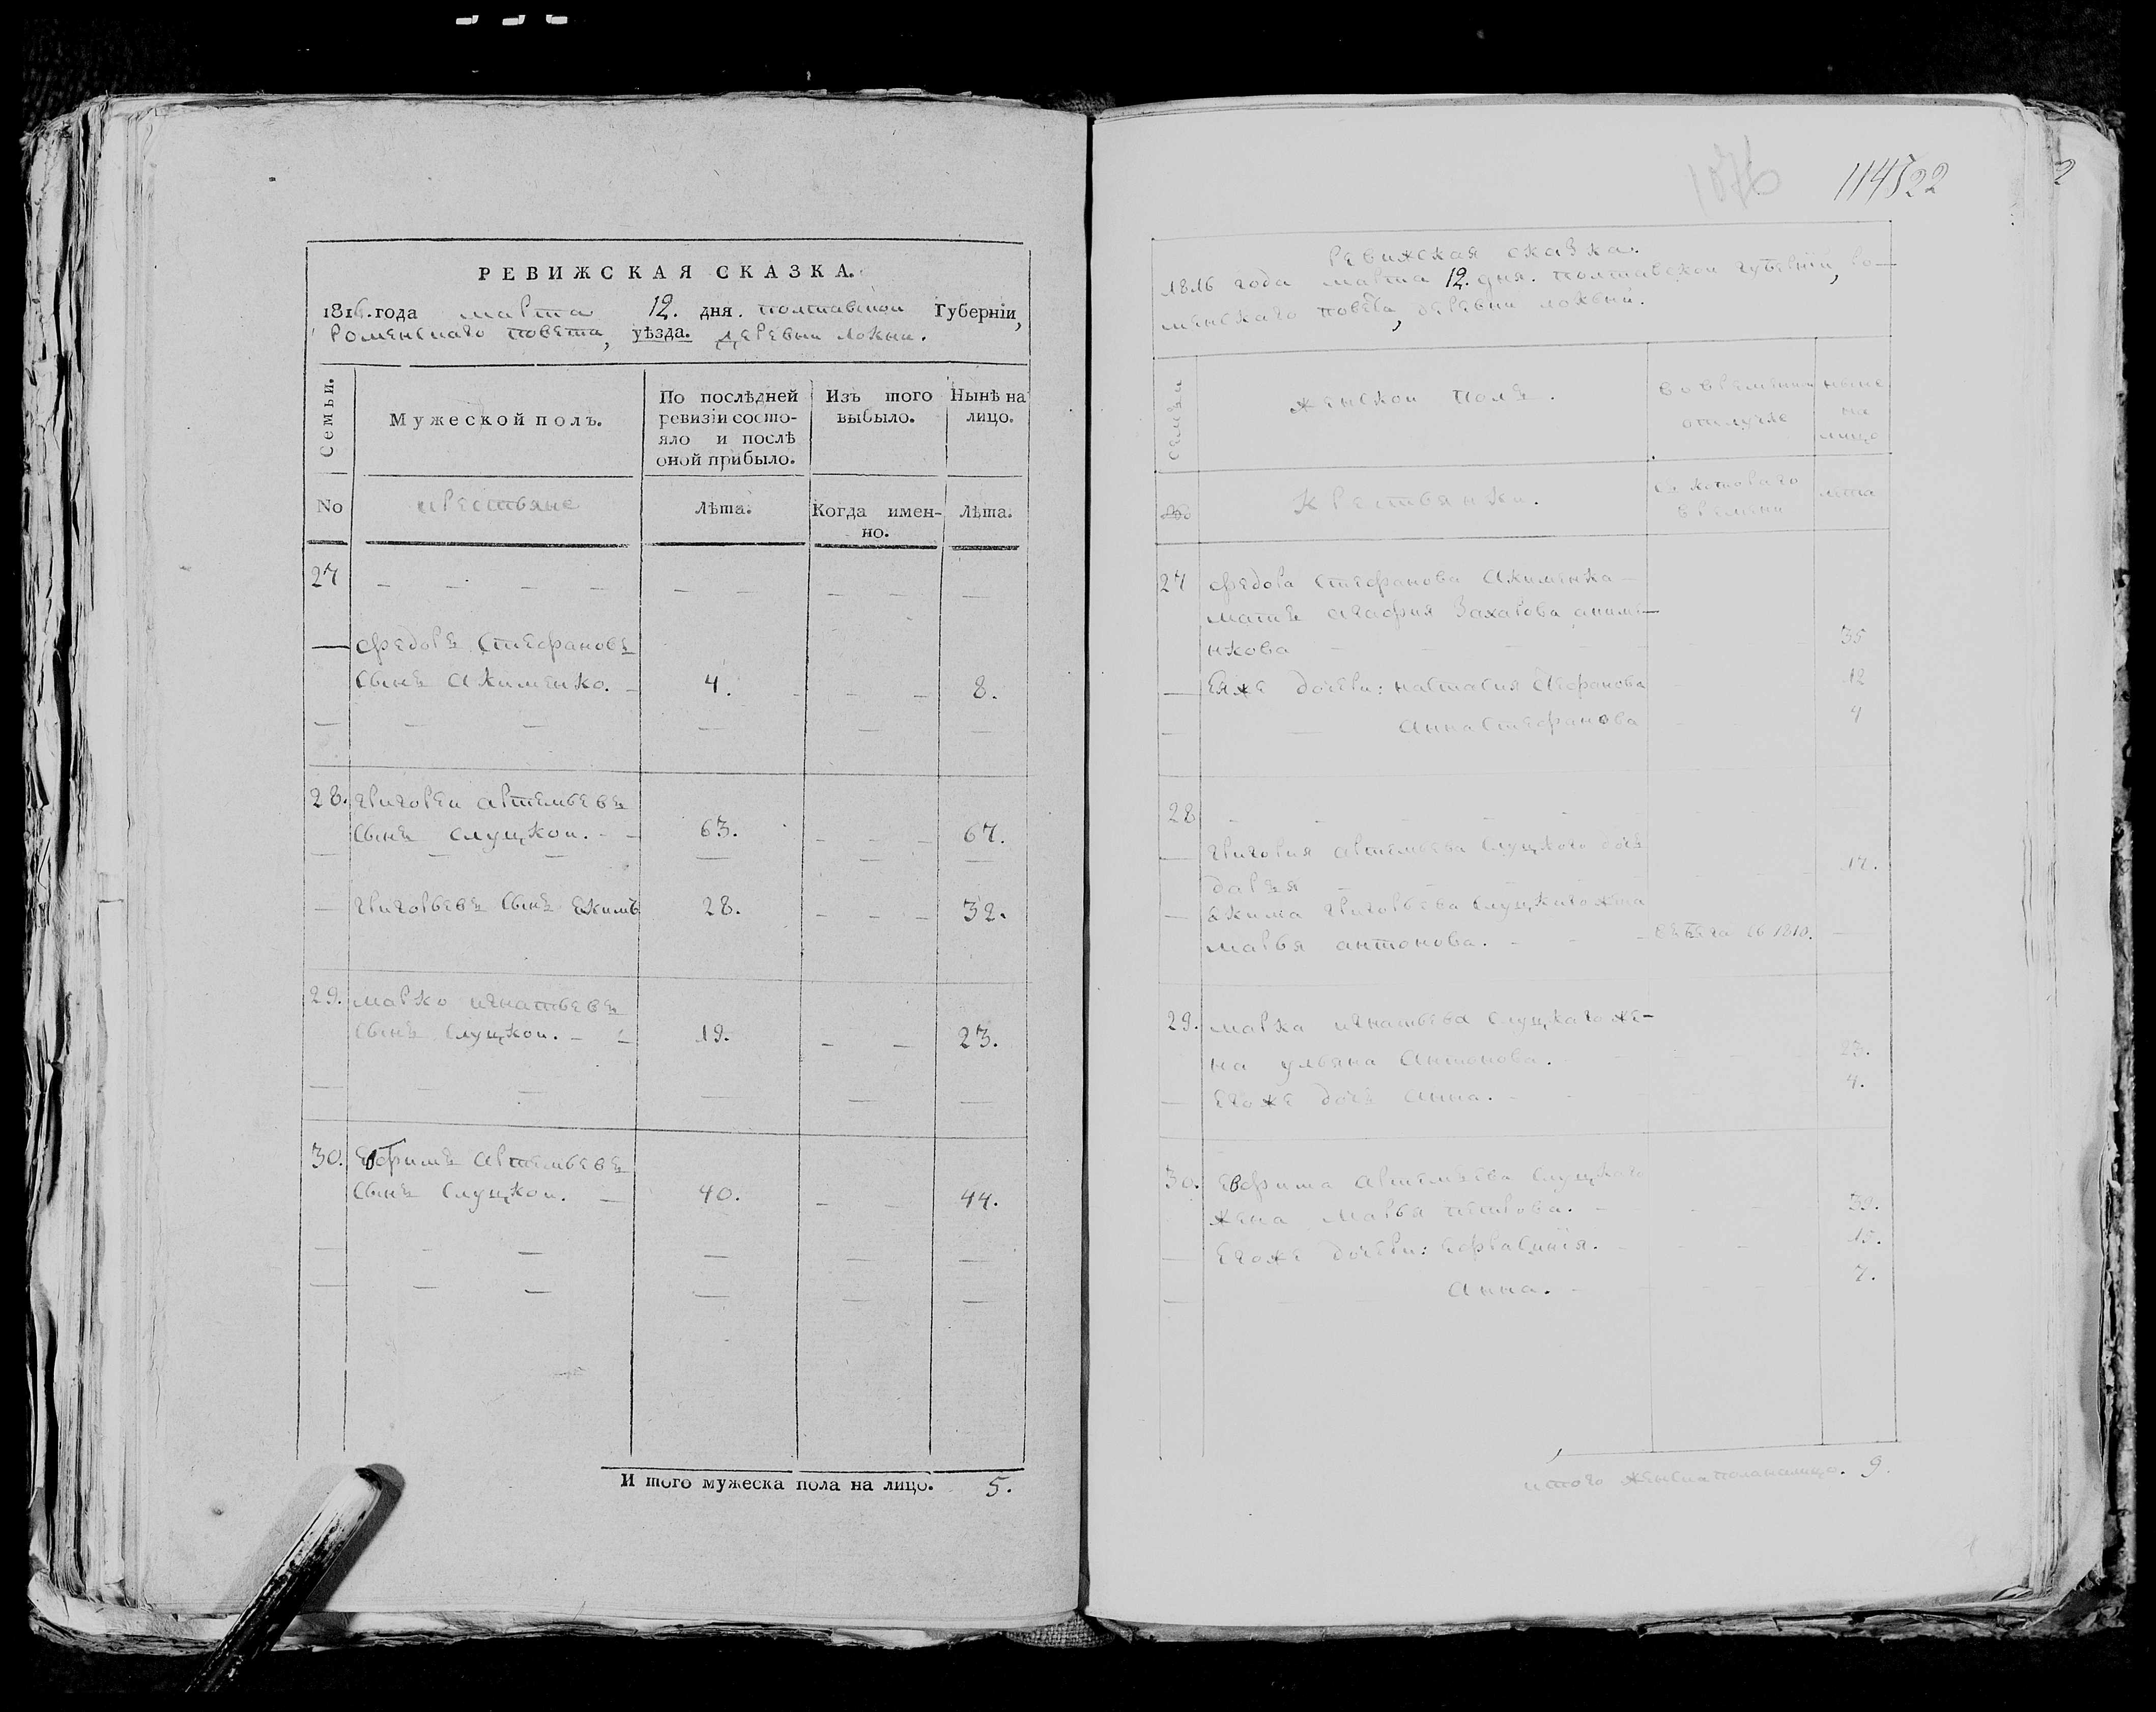 РЕВИЖСКАЯ СКАЗКА.
1816. года марта 12. дня. полтавской Губерніи,
роменскаго повета, уѣзда. деревни локни.
Семьи.
Мужеской полъ.
По послѣдней
ревизіи состо-
яло и послѣ
оной прибыло.
Изъ того
выбыло.
Нынѣ на
лицо.
No
крестьяне
Лѣта.
Когда имен-
но.
Лѣта.
27
федоръ стефановъ
сынъ Акименко. 4. 8.
28. григореи артемьевъ
сынъ слуцкои. 63. 67.
григорьевъ сынъ екимъ 28. 32.
29. марко игнатьевъ
сынъ слуцкои. 19. 23.
30. Евфимъ артемьевъ
сынъ слуцкои. 40. 44.
И того мужеска пола на лицо. 5.
1076
1145 22
ревижская сказка.
1816 года марта 12. дня. полтавской губерніи, ро-
менскаго повета, деревни локни.
семьи
женскои полъ.
во временнои
отлучке
ныне
на
лицо
№
крестьянки.
съ котораго
времени
лета
27 федора стефанова Акименка
мать агафия захарова акиме-
нкова 35
Еяже дочери: настасия стефанова 12
Анна стефанова 4
28
григория артемьева слуцкого дочь
дарья 17.
екима григорьева слуцкаго жена
марья антонова. 1810.
29. марка игнатьева слуцкаго же-
на ульяна Антонова. 23.
егоже дочь анна. 4.
30. евфима артемьева слуцкаго
жена марья петрова. 39.
егоже дочери: ефросиния. 15.
анна. 7.
итого женска пола налицо. 9.